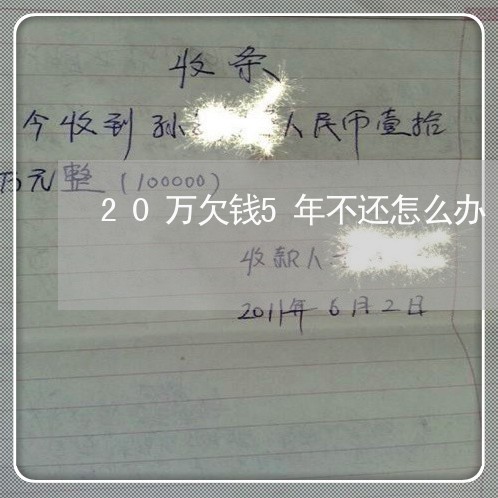 收条
今收到孙 人民币壹拾
万元整（100000）
20万欠钱5年不还怎么办
收款人
2011年6月2日